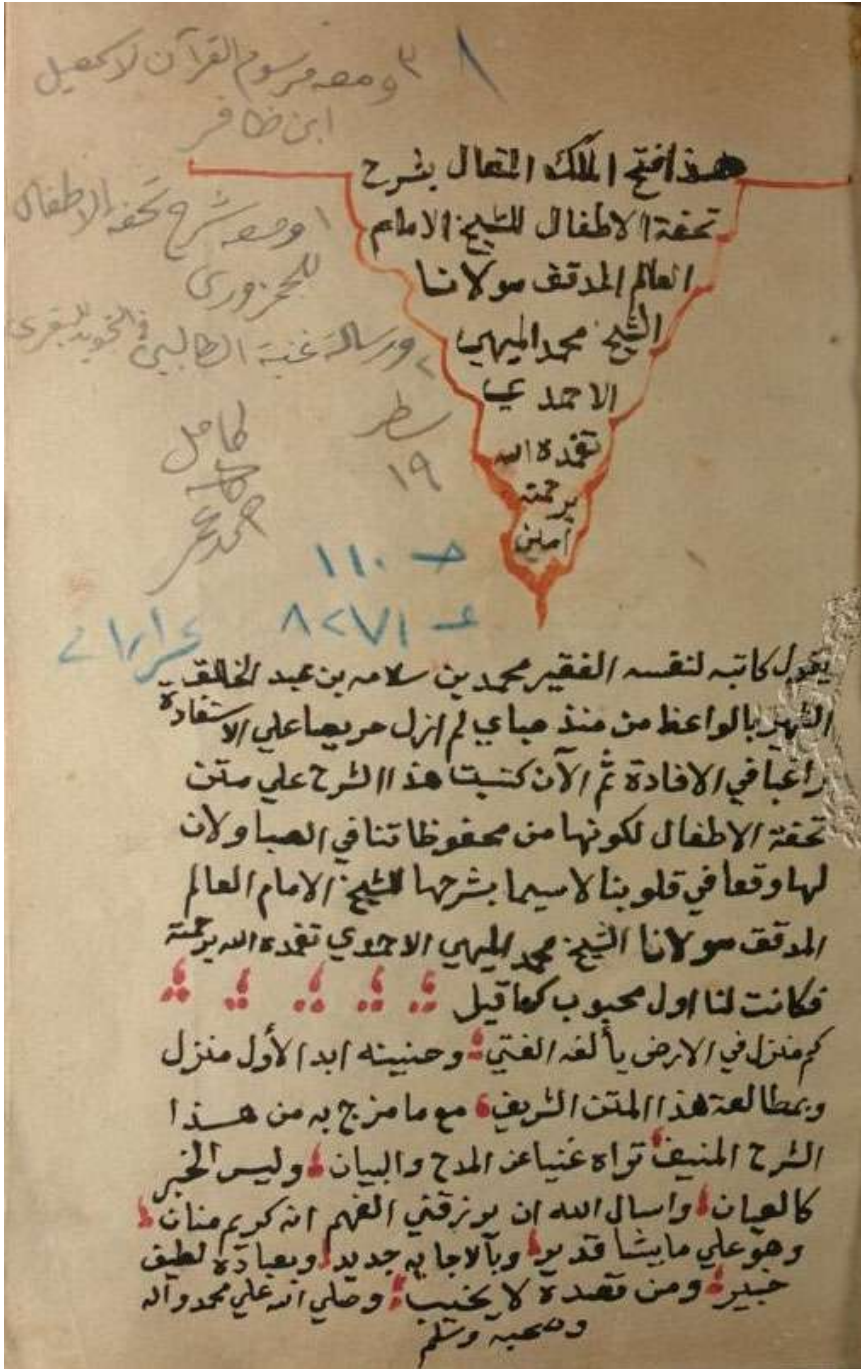 ٣ ومعه مرسوم القرآن لاسمعيل
ابن ظافر
هذا فتح الملك المتعال بشرح
تحفة الاطفال للشيخ الامام
العالم المدقق مولانا
الشيخ محمد الميهي
الاحمدي
تغمده الله
برحمته
امين
١ ومعه شرح تحفة الاطفال
للجمزوري
٢ ورسالة غنية الطالبين في التجويد للبقري
سطر
١٩
كامل
محمد عمر
١١٠
٨٢٧١
يقول كاتبه لنفسه الفقير محمد بن سلامه بن عبد الخالق
الشهير بالواعظ من منذ صباي لم ازل حريصا علي الاستفادة
راغبا في الافادة ثم الآن كتبت هذا الشرح علي متن
تحفة الاطفال لكونها من محفوظاتنا في الصبا ولان
لها وقعا في قلوبنا لاسيما بشرحها للشيخ الامام العالم
المدقق مولانا الشيخ محمد الميهي الاحمدي تغمده الله برحمته
فكانت لنا اول محبوب كما قيل
كم منزل في الارض يألفه الفتي وحنينه ابدا لأول منزل
وبمطالعة هذا المتن الشريف مع ما مزج به من هذا
الشرح المنيف تراه غنيا عن المدح والبيان وليس الخبر
كالعيان واسال الله ان يرزقني الفهم انه كريم منان
وهو علي ما يشا قدير وبالاجابه جدير وبعباده لطيف
خبير ومن قصده لا يخيب وصلي الله علي محمد واله
وصحبه وسلم